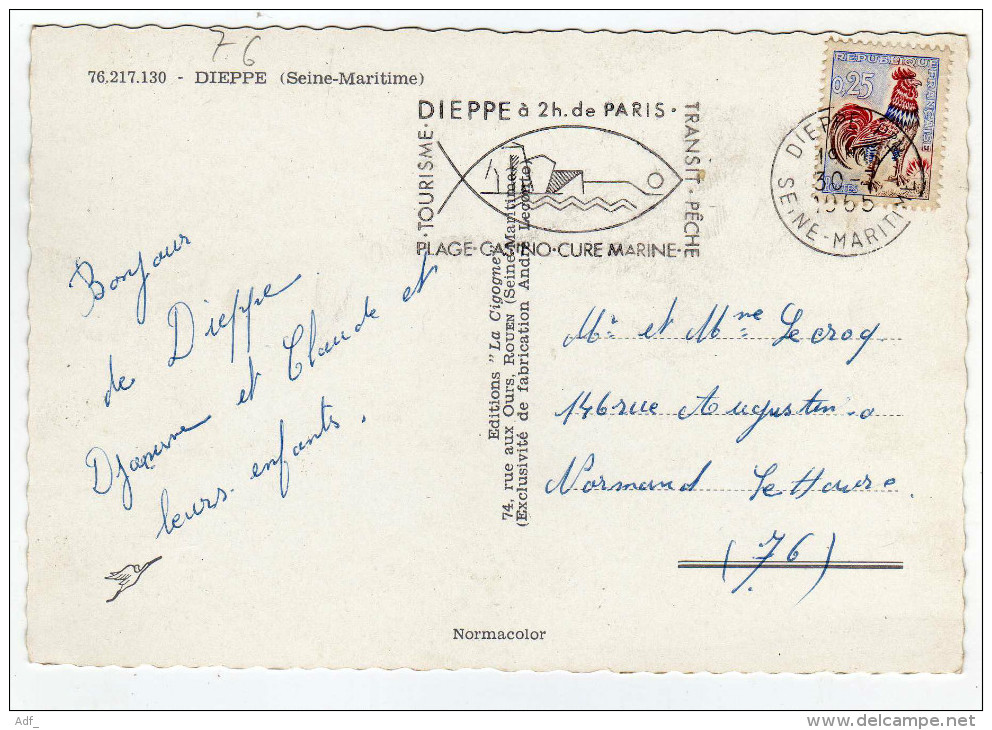 76
76.217.130 - DIEPPE (Seine-Maritime)
DIEPPE à 2h. de PARIS ·
· TOURISME ·
TRANSIT · PÊCHE
PLAGE · CASINO · CURE MARINE ·
REPUBLIQUE FRANÇAISE
0,25
DIEPPE
30-
1965
SEINE-MARITIME
Bonjour
de Dieppe
et Claude et
leurs enfants.
Editions "La Cigogne"
74, rue aux Ours, ROUEN (Seine-Maritime)
(Exclusivité de fabrication André Leconte)
Mr et Mme Lecroq
146 rue Augustin
Normand Le Havre
(76)
Normacolor
Adf_
delcampe.net